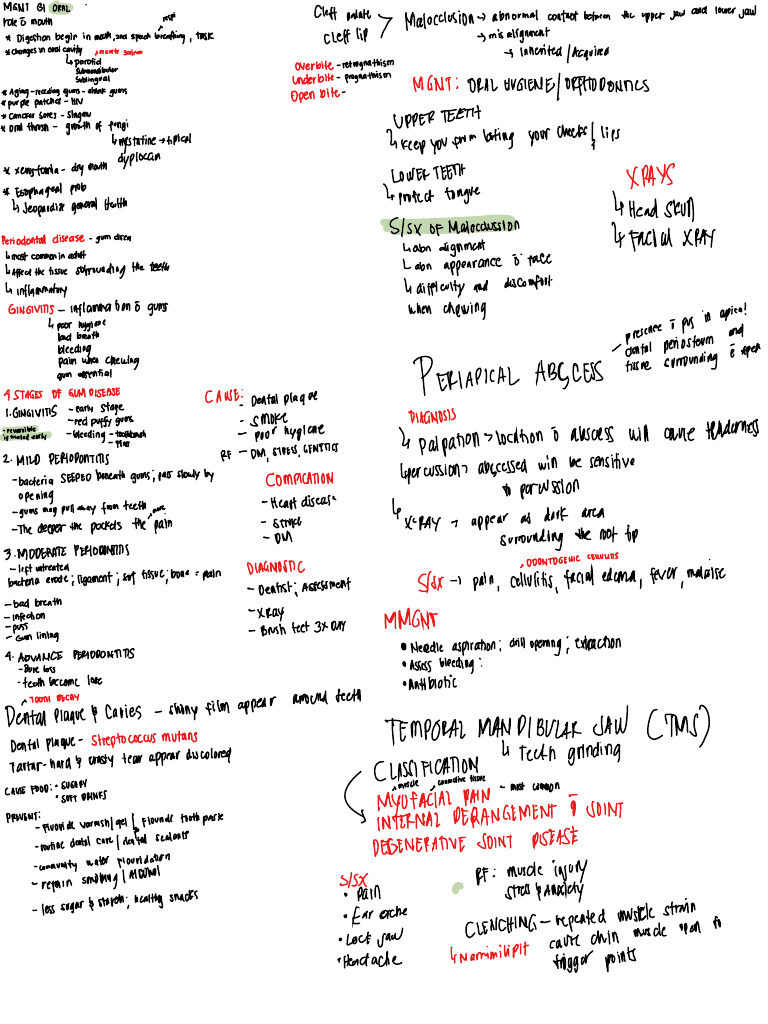 MGNT Of ORAL
role ō mouth
* Digestion begin in mouth, and speech breathing, taste
resp
* Changes in oral cavity
create saliva
↳ parotid
submandibular
sublingual
* Aging - receding gums - shrink gums
* purple patches - HIV
* Cancer sores -
* Oral thrush - growth of fungi
↳ nystatine → topical
* xerostomia - dry mouth
* Esophageal prob
↳ Jeopardize general health
Periodontal disease - gum
↳ most common in adult
↳ Affect the tissue surrounding the teeth
↳ inflammatory
GINGIVITIS - inflammation ō gums
↳ poor hygiene
bad breath
bleeding
pain when chewing
gum
4 STAGES OF GUM DISEASE
1. GINGIVITIS - early stage
- red puffy gums
- bleeding - toothbrush
- floss
- reversible
is treated early
2. MILD PERIODONTITIS
- bacteria SEEPED beneath gums; pass slowly by
opening
- gums may pull away from teeth
- The deeper the pockets the more pain
3. MODERATE PERIODONTITIS
- left untreated
bacteria erode; ligament; soft tissue; bone = pain
- bad breath
- infection
- puss
- Gum lining
4. ADVANCE PERIODONTITIS
- Bone loss
- teeth become lose
CAUSE: - Dental plaque
- SMOKE
- Poor hygiene
RF - DM, STRESS, GENETICS
COMPICATION
- Heart disease
- Stroke
- DM
DIAGNOSTIC
- Dentist; ASSESSMENT
- XRAY
- Brush teet 3x DAY
TOOTH DECAY
Dental Plaque & Caries - shiny film appear around teeth
Dental Plaque - Streptococcus mutans
Tartar - hard & crusty tear appear discolored
CAUSE FOOD: - SUGARY
• SOFT DRINKS
PREVENT:
- Fluoride varnish/gel / Flouride tooth paste
- routine dental care / dental sealants
- community water flouridation
- refrain smoking / Alcohol
- less sugar & starch; healthy snacks
Cleft palate
Cleff lip
> Malocclusion → abnormal contact between the upper jaw and lower jaw
→ misalignment
→ Inherited / Acquired
Overbite - retrognathism
Underbite - prognathism
Open bite -
MGNT: ORAL HYGIENE / ORTHODONTICS
UPPER TEETH
↳ Keep you from biting your cheeks / lips
LOWER TEETH
↳ protect tongue
S/SX OF Maloccussion
↳ abn alignment
↳ abn appearance ō face
↳ difficulty and discomfort
when chewing
XRAYS
↳ Head skull
↳ FACIAL XRAY
PERIAPICAL ABSCESS
presence ō pus in apical
dental periosteum and
tissue surrounding
DIAGNOSIS
↳ Palpation > location ō abscess will cause tenderness
↳ percussion > abscessed will be sensitive
to percussion
↳ X-RAY → appear as dark area
surrounding the root tip
ODONTOGENIC CELLULITIS
S/SX → pain, cellulitis, facial edema, fever, malaise
MMGNT
• Needle aspiration; drill opening; extraction
• Assess bleeding:
• Antibiotic
TEMPORAL MANDIBULAR JAW (TMJ)
↳ Teeth grinding
CLASSIFICATION
muscle connective tissue
MYOFACIAL PAIN - most common
INTERNAL DERANGEMENT ō JOINT
DEGENERATIVE JOINT DISEASE
S/SX
• Pain
• Ear ache
• Lock jaw
• Headache
RF: muscle injury
stress & anxiety
CLENCHING - repeated muscle strain
cause chin muscle
trigger points